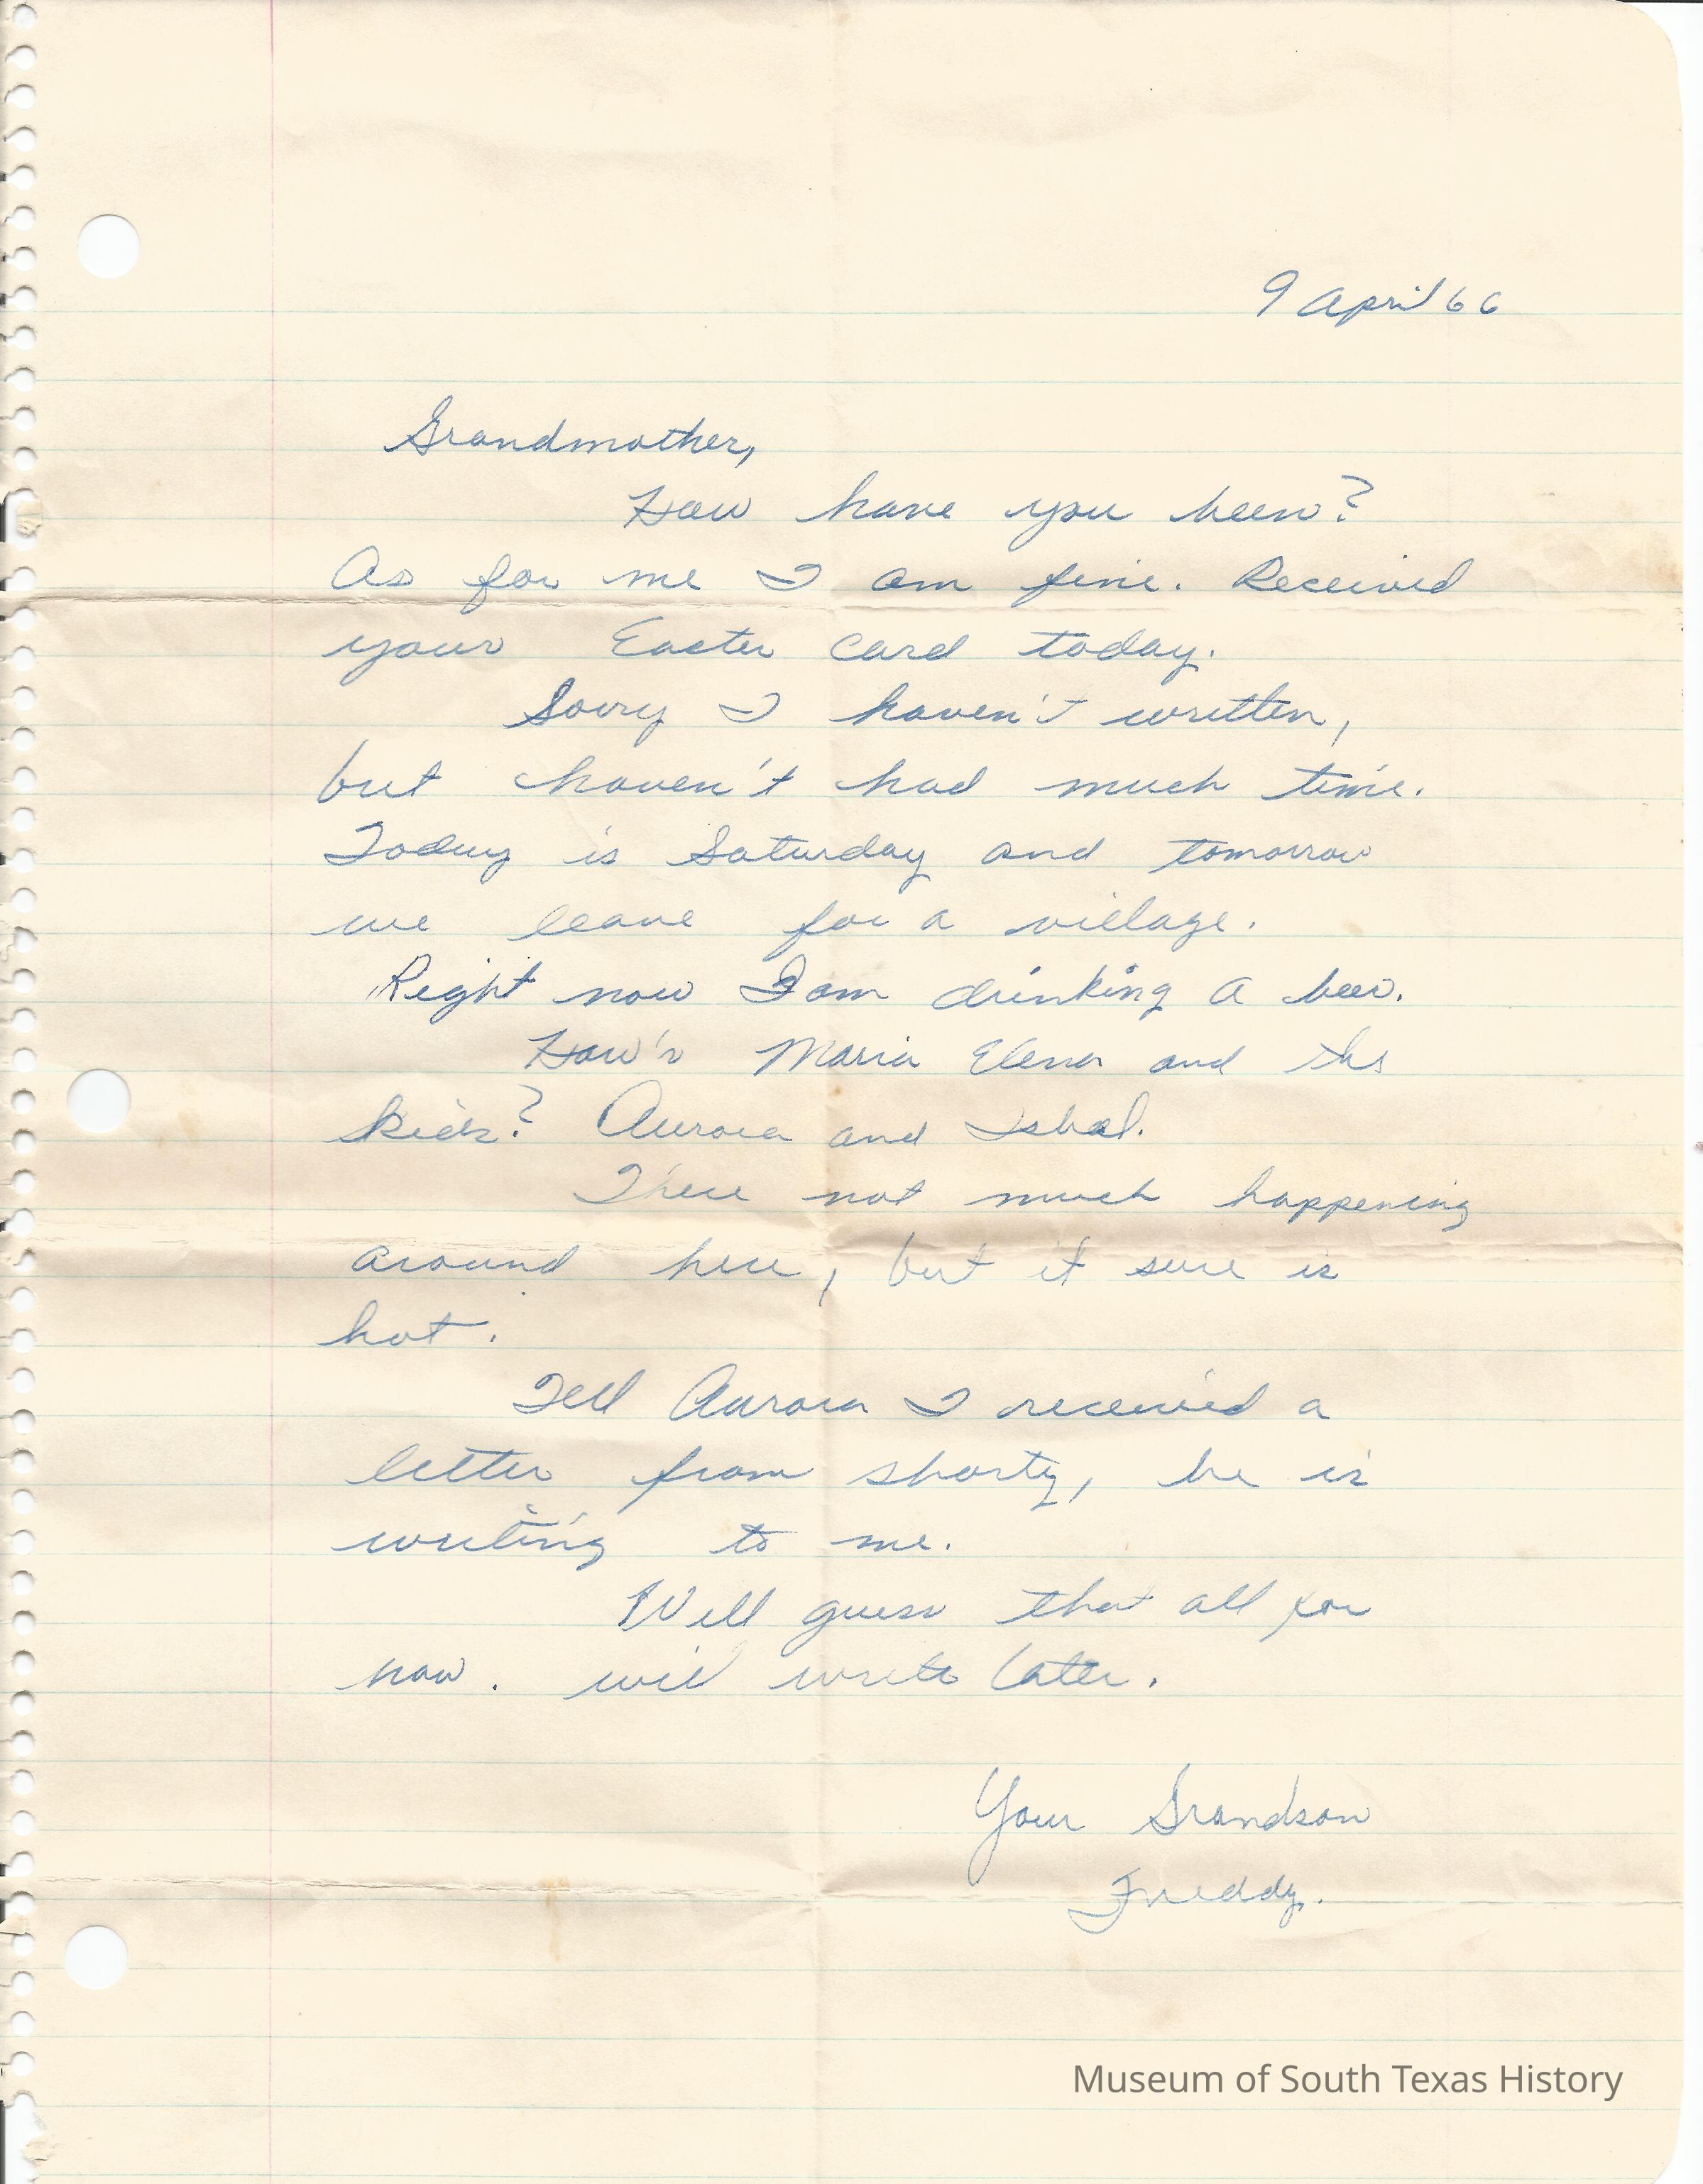 9 April 66
Grandmother,
How have you been?
As for me I am fine. Received
your Easter card today.
Sorry I haven't written,
but haven't had much time.
Today is Saturday and tomorrow
we leave for a village.
Right now I am drinking a beer.
How's Maria Elena and the
kids? Aurora and
There not much happening
around here, but it sure is
hot.
Tell Aurora I received a
letter from shorty, he is
writing to me.
Well guess that all for
now. will write later.
Your Grandson
Freddy.
Museum of South Texas History